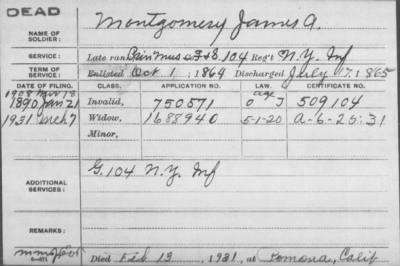 DEAD
NAME OF SOLDIER: Montgomery James A.
SERVICE: Late rank Prin Mus F&S. 104 Reg't N.Y. Inf
TERM OF SERVICE: Enlisted Oct 1, 1864 Discharged July 17, 1865
DATE OF FILING. CLASS. APPLICATION NO. LAW. CERTIFICATE NO.
1908 Nov 18 age
1890 Jan 21 Invalid, 750571 509104
1931 Mch 7 Widow, 1688940 5-1-20 A-6-25-31
Minor,
ADDITIONAL SERVICES: G. 104 N.Y. Inf
REMARKS:
Died Feb 13, 1931, at Pomona, Calif